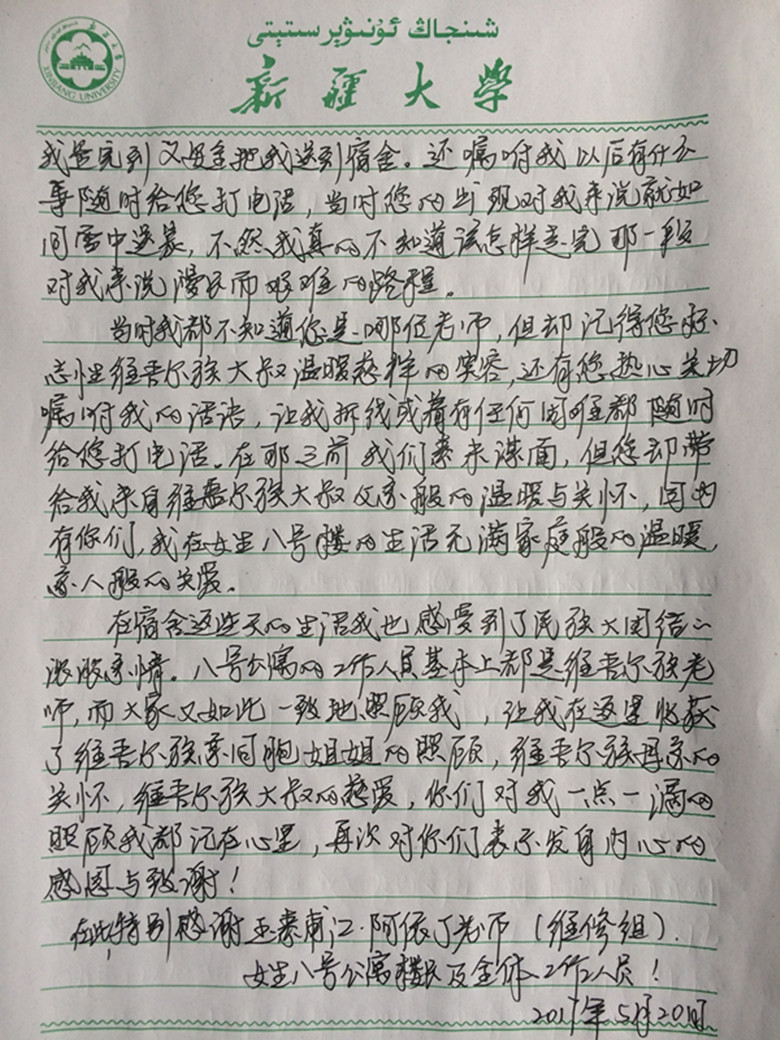 شىنجاڭ ئۇنىۋېرسىتېتى
新疆大学
XINJIANG UNIVERSITY
我是完到又安全把我送到宿舍。还嘱咐我以后有什么
事随时给您打电话，当时您的出现对我来说就如
同雪中送炭，不然我真的不知道该怎样走完那一段
对我来说漫长而艰难的路程。
当时我都不知道您是哪位老师，但却记得您标
志性维吾尔族大叔温暖慈祥的笑容，还有您热心关切
嘱咐我的话语，让我拆线或着有任何困难都随时
给您打电话。在那之前我们素未谋面，但您却带
给我来自维吾尔族大叔父亲般的温暖与关怀，因为
有你们，我在女生八号楼的生活充满家庭般的温暖，
亲人般的关爱。
在宿舍这些天的生活我也感受到了民族大团结的
浓浓亲情。八号公寓的工作人员基本上都是维吾尔族老
师，而大家又如此一致地照顾我，让我在这里收获
了维吾尔族亲同胞姐姐的照顾，维吾尔族母亲的
关怀，维吾尔族大叔的慈爱，你们对我一点一滴的
照顾我都记在心里，再次对你们表示发自内心的
感恩与致谢！
在此特别感谢玉素甫江·阿依丁老师（维修组）.
女生八号公寓楼长及全体工作人员！
2017年5月20日